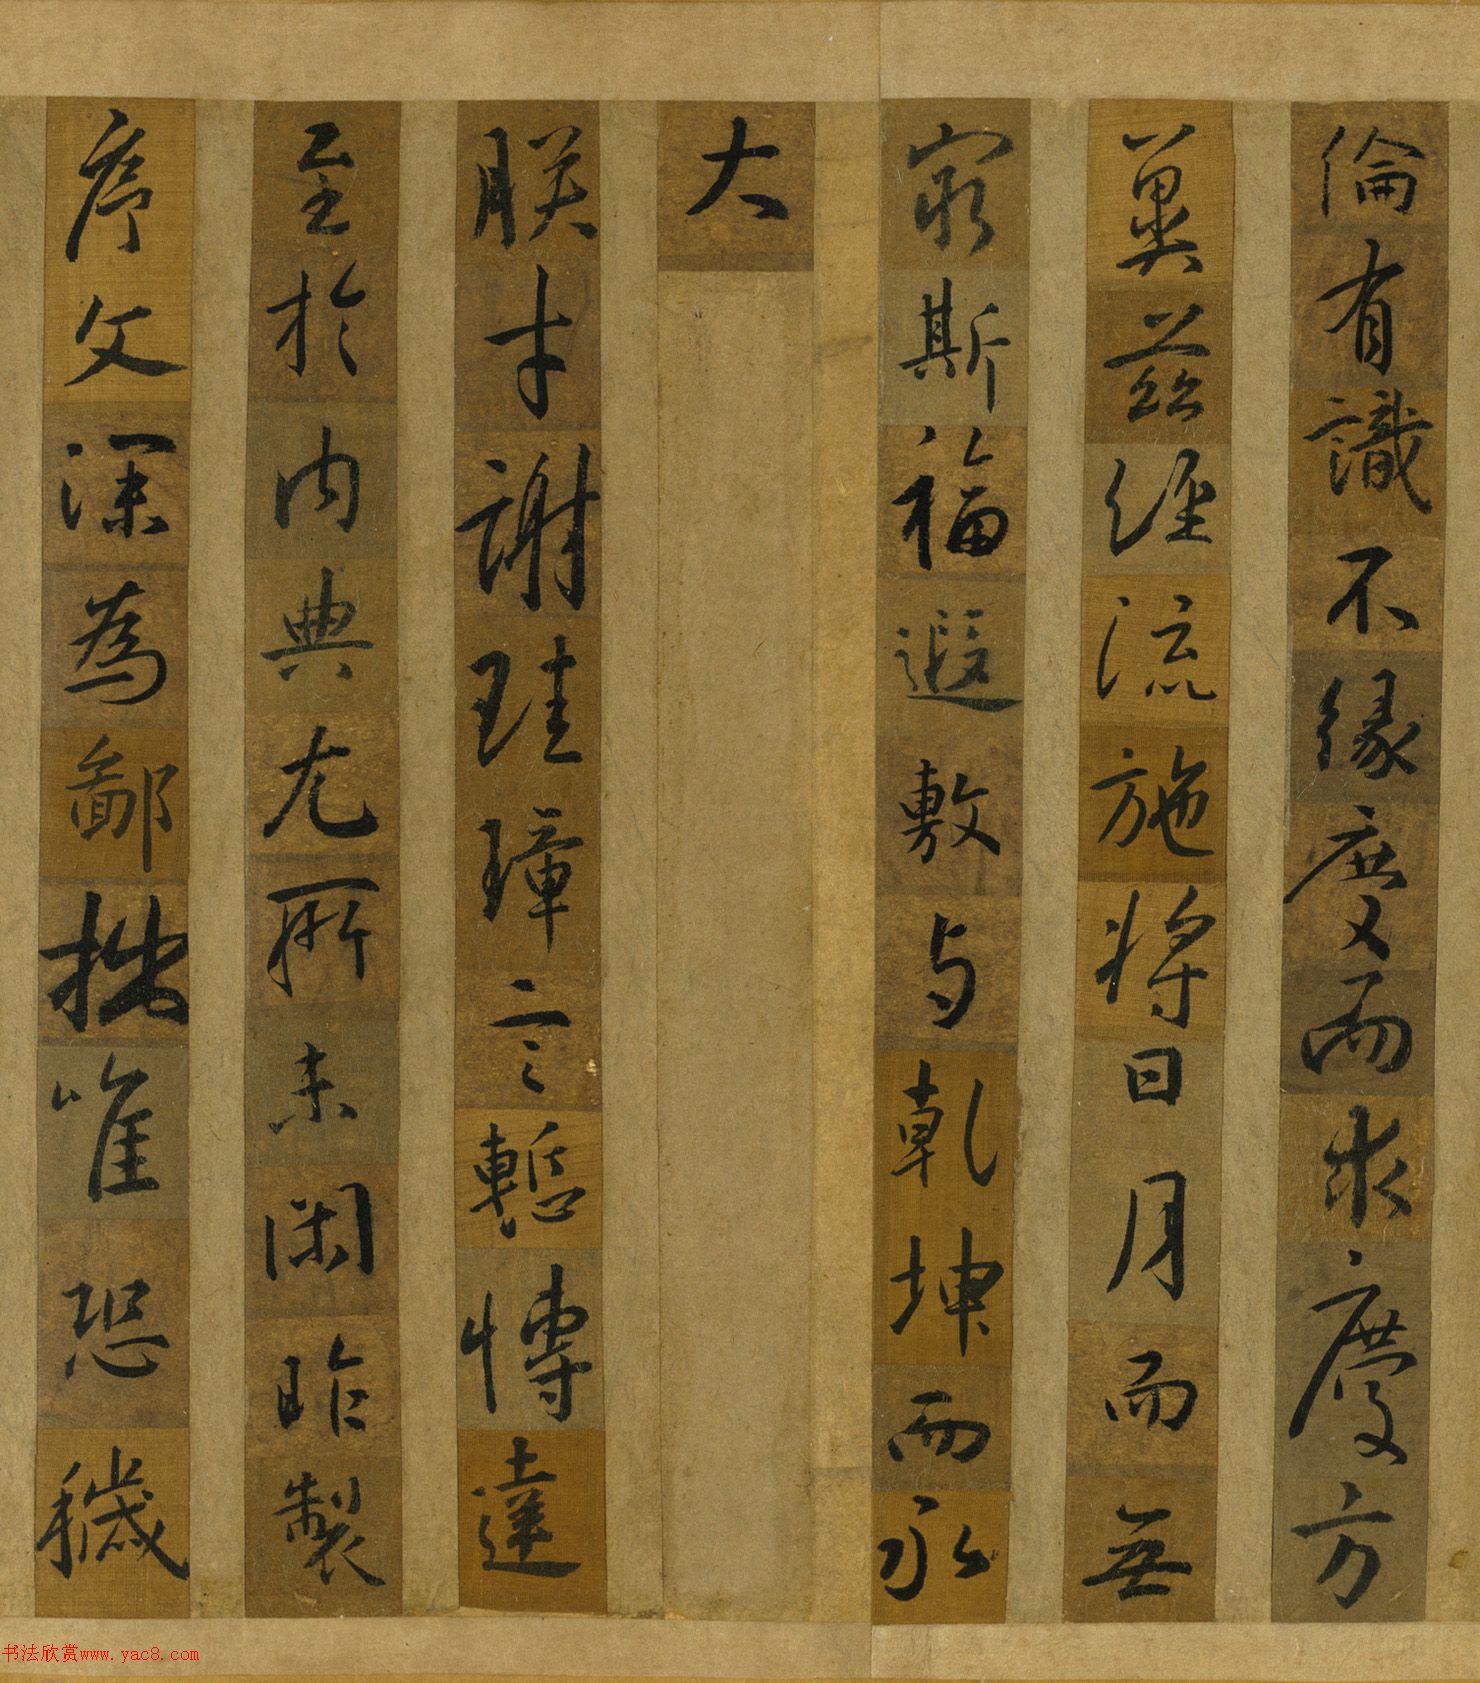 倫有識不緣慶而求慶方
冀茲經流施将日月而無
窮斯福遐敷与乾坤而永
大
朕才謝珪璋言慙愽達
至於内典尤所未閑昨製
序文深為鄙拙唯恐穢
书法欣赏www.yac8.com